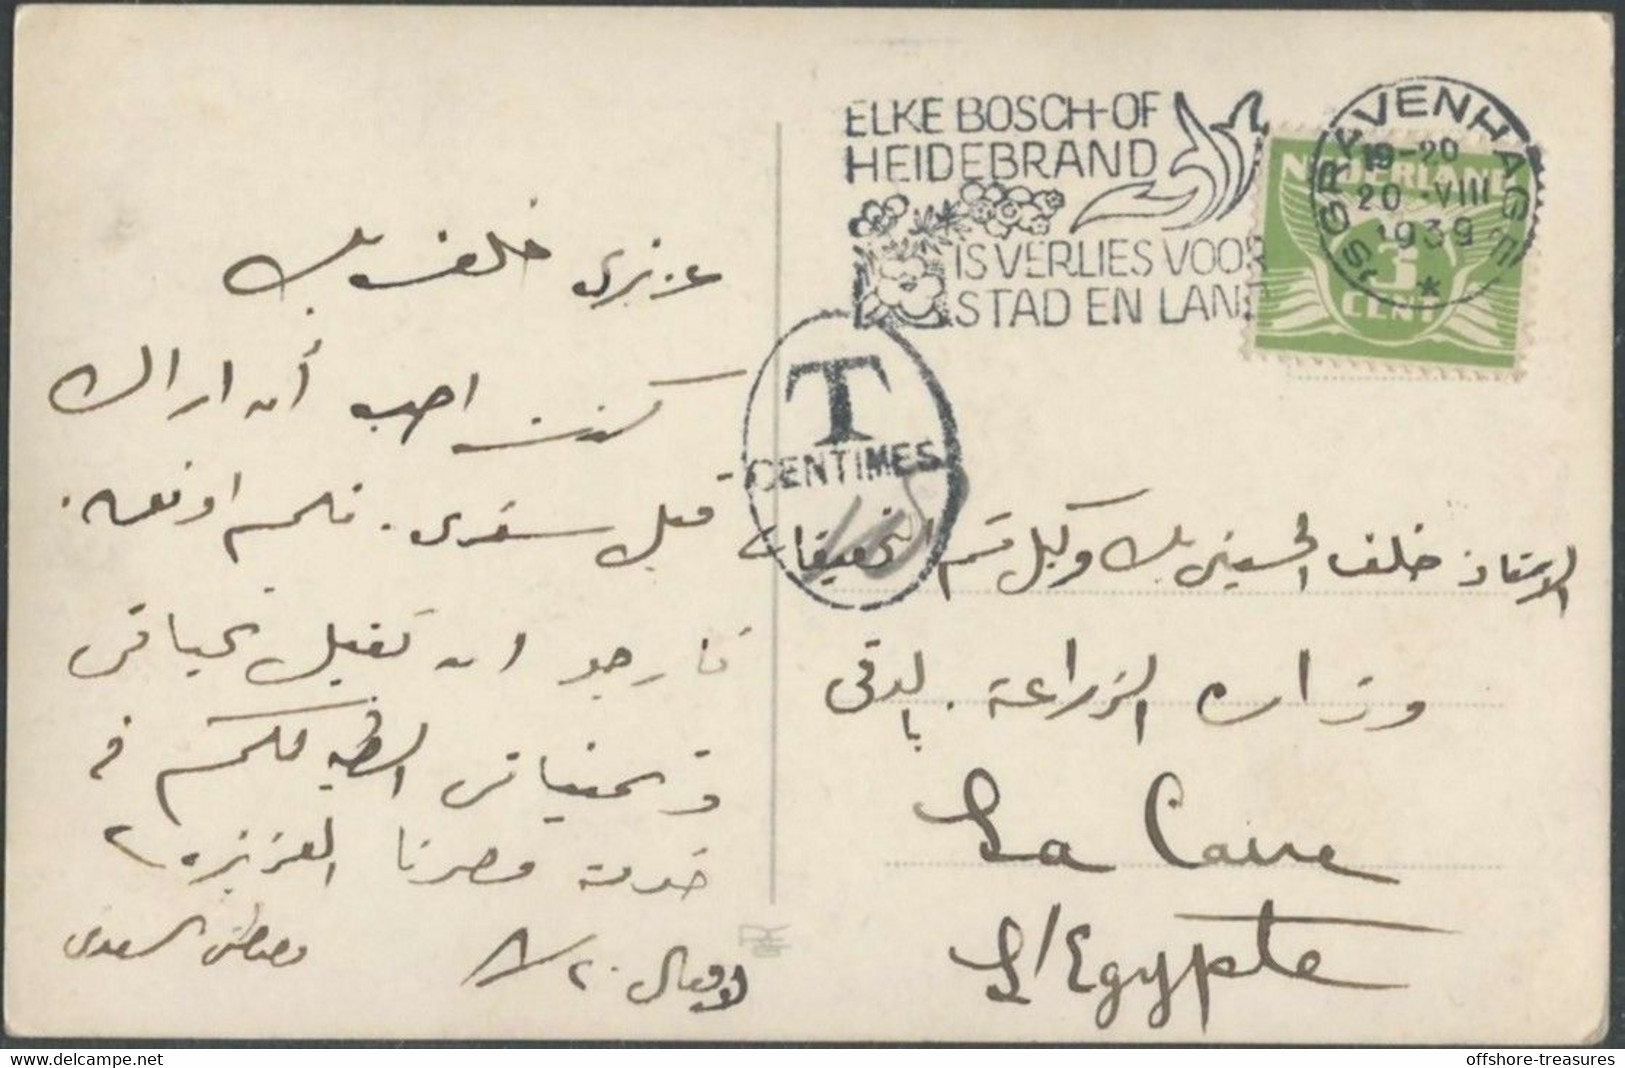 ELKE BOSCH- OF
HEIDEBRAND
IS VERLIES VOOR
STAD EN LAND
'S GRAVENHAGE
19-20
20 VIII
1939
NEDERLAND
3
CENT
T
CENTIMES
عزيزى خلف بك
كنت احب أن اراك
قبل سفرى . فلم اوفق .
فارجو ان تقبل تحياتى
و تمنياتى الطيبه لكم فى
خدمة مصرنا العزيزه
لاهاى ٢٠/٨
مصطفى السعدى
الاستاذ خلف الحسينى بك وكيل قسم التحقيقات
وزارة الزراعة . بالدقى
La Caire
L'Egypte
offshore-treasures